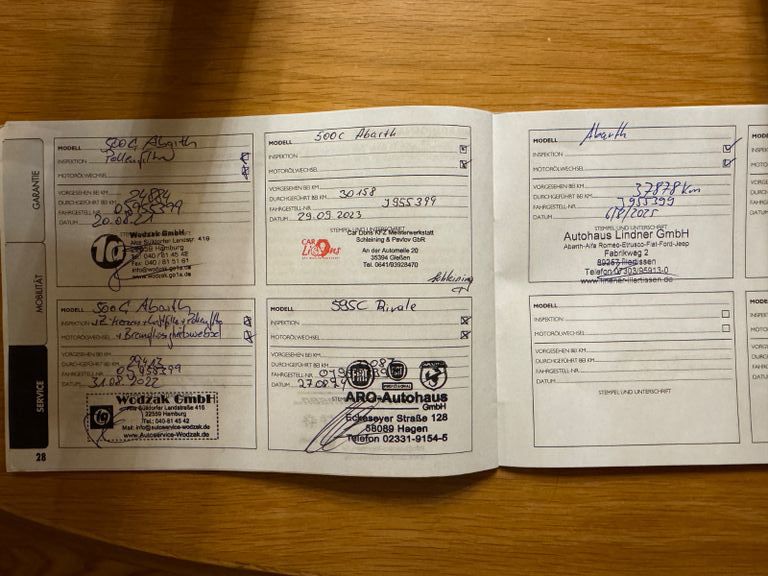 GARANTIE
MOBILITÄT
SERVICE
28
MODELL 500C Abarth
INSPEKTION Pollenfilter
MOTORÖLWECHSEL
VORGESEHEN BEI KM
DURCHGEFÜHRT BEI KM 24884
FAHRGESTELL-NR.
DATUM 20.08.21
STEMPEL UND UNTERSCHRIFT
Wodzak GmbH
Alte Sülldorfer Landstr. 416
Hamburg
Tel: 040 / 81 45 42
Fax: 040 / 81 51 91
info@wodzak.go1a.de
www.wodzak.go1a.de
MODELL 500C Abarth
INSPEKTION
MOTORÖLWECHSEL
VORGESEHEN BEI KM
DURCHGEFÜHRT BEI KM
FAHRGESTELL-NR.
DATUM 31.08.2022
Wodzak GmbH
Alte Sülldorfer Landstraße 416
22559 Hamburg
Tel.: 040-81 45 42
Mail: info@autoservice-wodzak.de
www.Autoservice-Wodzak.de
MODELL 500C Abarth
INSPEKTION
MOTORÖLWECHSEL
VORGESEHEN BEI KM
DURCHGEFÜHRT BEI KM 30158
FAHRGESTELL-NR. J955399
DATUM 29.09.2023
STEMPEL UND UNTERSCHRIFT
CAR Lions
Car Lions KFZ Meisterwerkstatt
Schleining & Pavlov GbR
An der Automeile 20
35394 Gießen
Tel. 0641/93928470
Schleining
MODELL 595C Rivale
INSPEKTION
MOTORÖLWECHSEL
VORGESEHEN BEI KM
DURCHGEFÜHRT BEI KM
FAHRGESTELL-NR.
DATUM
FIAT
FIAT
PROFESSIONAL
ABARTH
ARO-Autohaus
GmbH
Eckeseyer Straße 128
58089 Hagen
Telefon 02331-9154-5
MODELL Abarth
INSPEKTION
MOTORÖLWECHSEL
VORGESEHEN BEI KM
DURCHGEFÜHRT BEI KM 37878 km
FAHRGESTELL-NR. J955399
DATUM 6/8/2025
STEMPEL UND UNTERSCHRIFT
Autohaus Lindner GmbH
Abarth-Alfa Romeo-Etrusco-Fiat-Ford-Jeep
Fabrikweg 2
89257 Illertissen
Telefon 07303/95913-0
www.lindner-illertissen.de
MODELL
INSPEKTION
MOTORÖLWECHSEL
VORGESEHEN BEI KM
DURCHGEFÜHRT BEI KM
FAHRGESTELL-NR.
DATUM
STEMPEL UND UNTERSCHRIFT